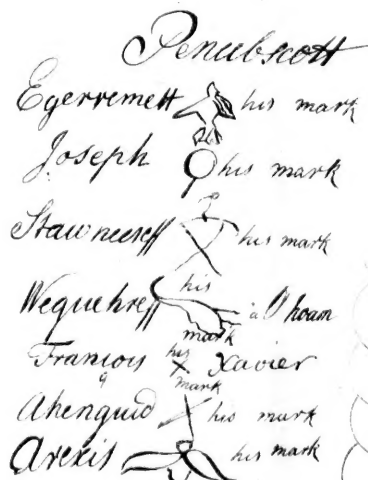 Penubscott
Egerremett his mark
Joseph his mark
Stawneeseff his mark
Wequehreff his mark a Phoam
Franiois his mark Xavier
Ahenquid his mark
Arexis his mark